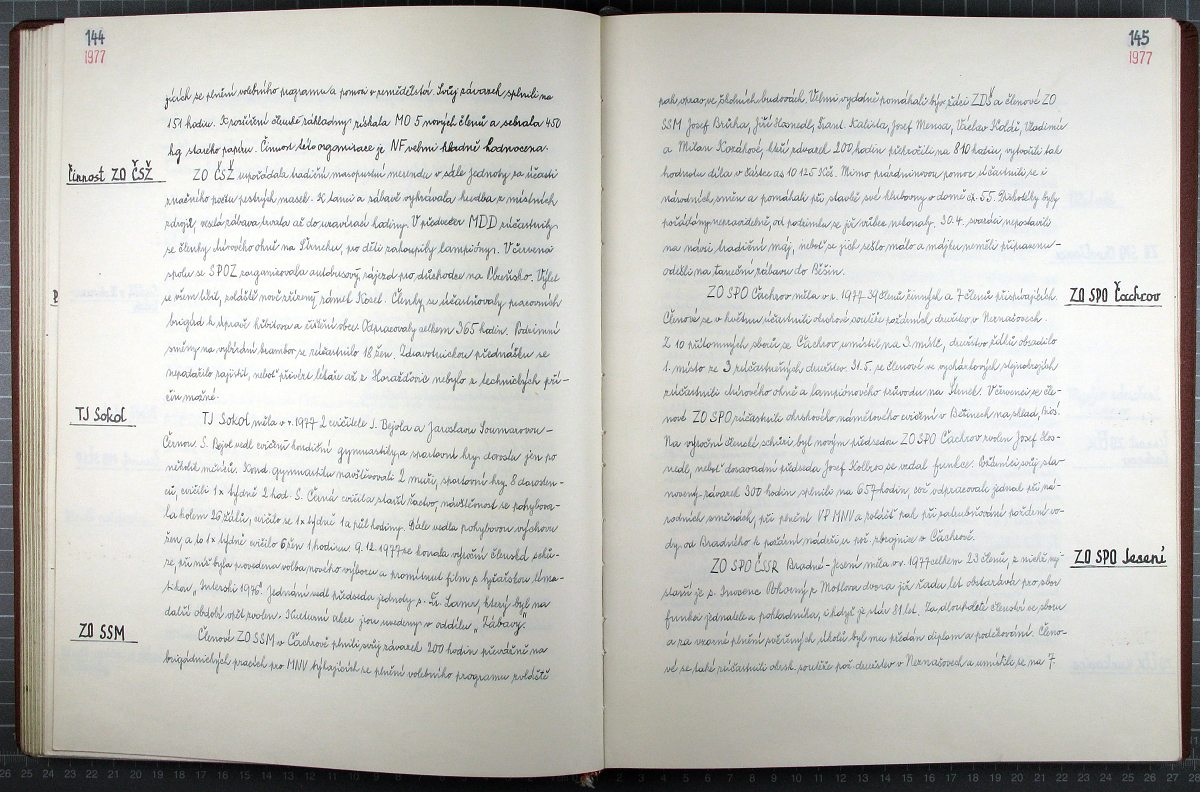 144
1977
jících se plnění volebního programu a pomoci v zemědělství. Svůj závazek splnili na
151 hodin. K rozšíření členské základny získala MO 5 nových členů a sebrala 450
kg starého papíru. Činnost této organizace je NF velmi kladně hodnocena.
Činnost ZO ČSŽ
ZO ČSŽ uspořádala tradiční masopustní merendu v sále Jednoty za účasti
značného počtu pestrých masek. K tanci a zábavě vyhrávala hudba z místních
zdrojů, veselá zábava trvala až do uzavírací hodiny. V předvečer MDD zúčastnily
se členky mírového ohně na Štůrnku, pro děti zakoupily lampióny. V červenci
spolu se SPOZ zorganizovala autobusový zájezd pro důchodce na Písecko. Výlet
se všem líbil, zvláště nově zřízený zámek Kozel. Členky se účastňovaly pracovních
brigád k úpravě hřbitova a čištění obce. Odpracovaly celkem 365 hodin. Podzimní
směny na vybírání brambor se zúčastnilo 18 žen. Zdravotnickou přednášku se
nepodařilo zajistit, neboť přivézt lékaře až z Horažďovic nebylo z technických pří-
čin možné.
TJ Sokol
TJ Sokol měla v r. 1977 2 cvičitele J. Bejvla a Jaroslavu Soumarovou-
Černou. S. Bejvl vedl cvičení kondiční gymnastiky a sportovní hry dorostu jen po
několik měsíců. Kond. gymnastiku navštěvovali 2 muži, sportovní hry 8 dorosten-
ců, cvičili 1x týdně 2 hod. S. Černá cvičila starší žactvo, návštěvnost se pohybova-
la kolem 26 žáků, cvičilo se 1x týdně 1 a půl hodiny. Dále vedla pohybovou výchovu
žen, a to 1x týdně cvičilo 6 žen 1 hodinu. 9.12.1977 se konala výroční členská schů-
ze, při níž byla provedena volba nového výboru a promítnut film s lyžařskou téma-
tikou "Interski 1976". Jednání vedl předseda jednoty s. Fr. Lamr, který byl na
další období opět zvolen. Kulturní akce jsou uvedeny v oddílu "Zábavy".
ZO SSM
Členové ZO SSM v Čachrově plnili svůj závazek 200 hodin převážně na
brigádnických pracích pro MNV týkajících se plnění volebního programu zvláště
145
1977
pak oprav ve školních budovách. Velmi vydatně pomáhali býv. žáci ZDŠ a členové ZO
SSM Josef Brůha, Jiří Hanzedl, Frant. Kalista, Josef Mensa, Václav Kolář, Vladimír
a Milan Kozákové, kteří závazek 200 hodin překročili na 810 hodin, vytvořili tak
hodnotu díla v částce as 10 125 Kčs. Mimo prázdninovou pomoc zúčastnili se i
národních směn a pomáhali při stavbě své klubovny v domě čp. 55. Diskotéky byly
pořádány nepravidelně, od podzimku se již vůbec nekonaly. 30.4. svazáci nepostavili
na návsi tradiční máj, neboť se jich sešlo málo a májku neměli připravenu-
odešli na taneční zábavu do Běšin.
ZO SPO Čachrov
ZO SPO Čachrov měla v r. 1977 39 členů činných a 7 členů přispívajících.
Členové se v květnu zúčastnili okrskové soutěže požárních družstev v Neznašovech.
Z 10 přítomných sborů se Čachrov umístil na 3. místě, družstvo žáků obsadilo
1. místo ze 3 zúčastněných družstev. 31.5. se členové ve vycházkových stejnokrojích
zúčastnili mírového ohně a lampionového průvodu na Štůrnek. V červenci se čle-
nové ZO SPO zúčastnili okrskového námětového cvičení v Běšinech
Na výroční členské schůzi byl novým předsedou ZO SPO Čachrov zvolen Josef Hos-
nedl, neboť dosavadní předseda Josef Kolbrs se vzdal funkce. Občaníci svůj sta-
novený závazek 300 hodin splnili na 657 hodin, což odpracovali jednak při ná-
rodních směnách, při plnění VP MNV a zvláště pak při zatrubňování požární vo-
dy od Bradného k požární nádrži u pož. zbrojnice v Čachrově.
ZO SPO Jesení
ZO SPO ČSSR Bradné-Jesení měla v r. 1977 celkem 23 členů, z nichž nej-
starší je s. Inocenc Poborný z Motlova dvora již řadu let obstarává pro sbor
funkci jednatele a pokladníka, i když je stár 81 let. Za dlouholeté členství ve sboru
a za vzorné plnění svěřených úkolů byl mu předán diplom a poděkování. Členo-
vé se také zúčastnili okrsk. soutěže pož. družstev v Neznašovech a umístili se na 7.